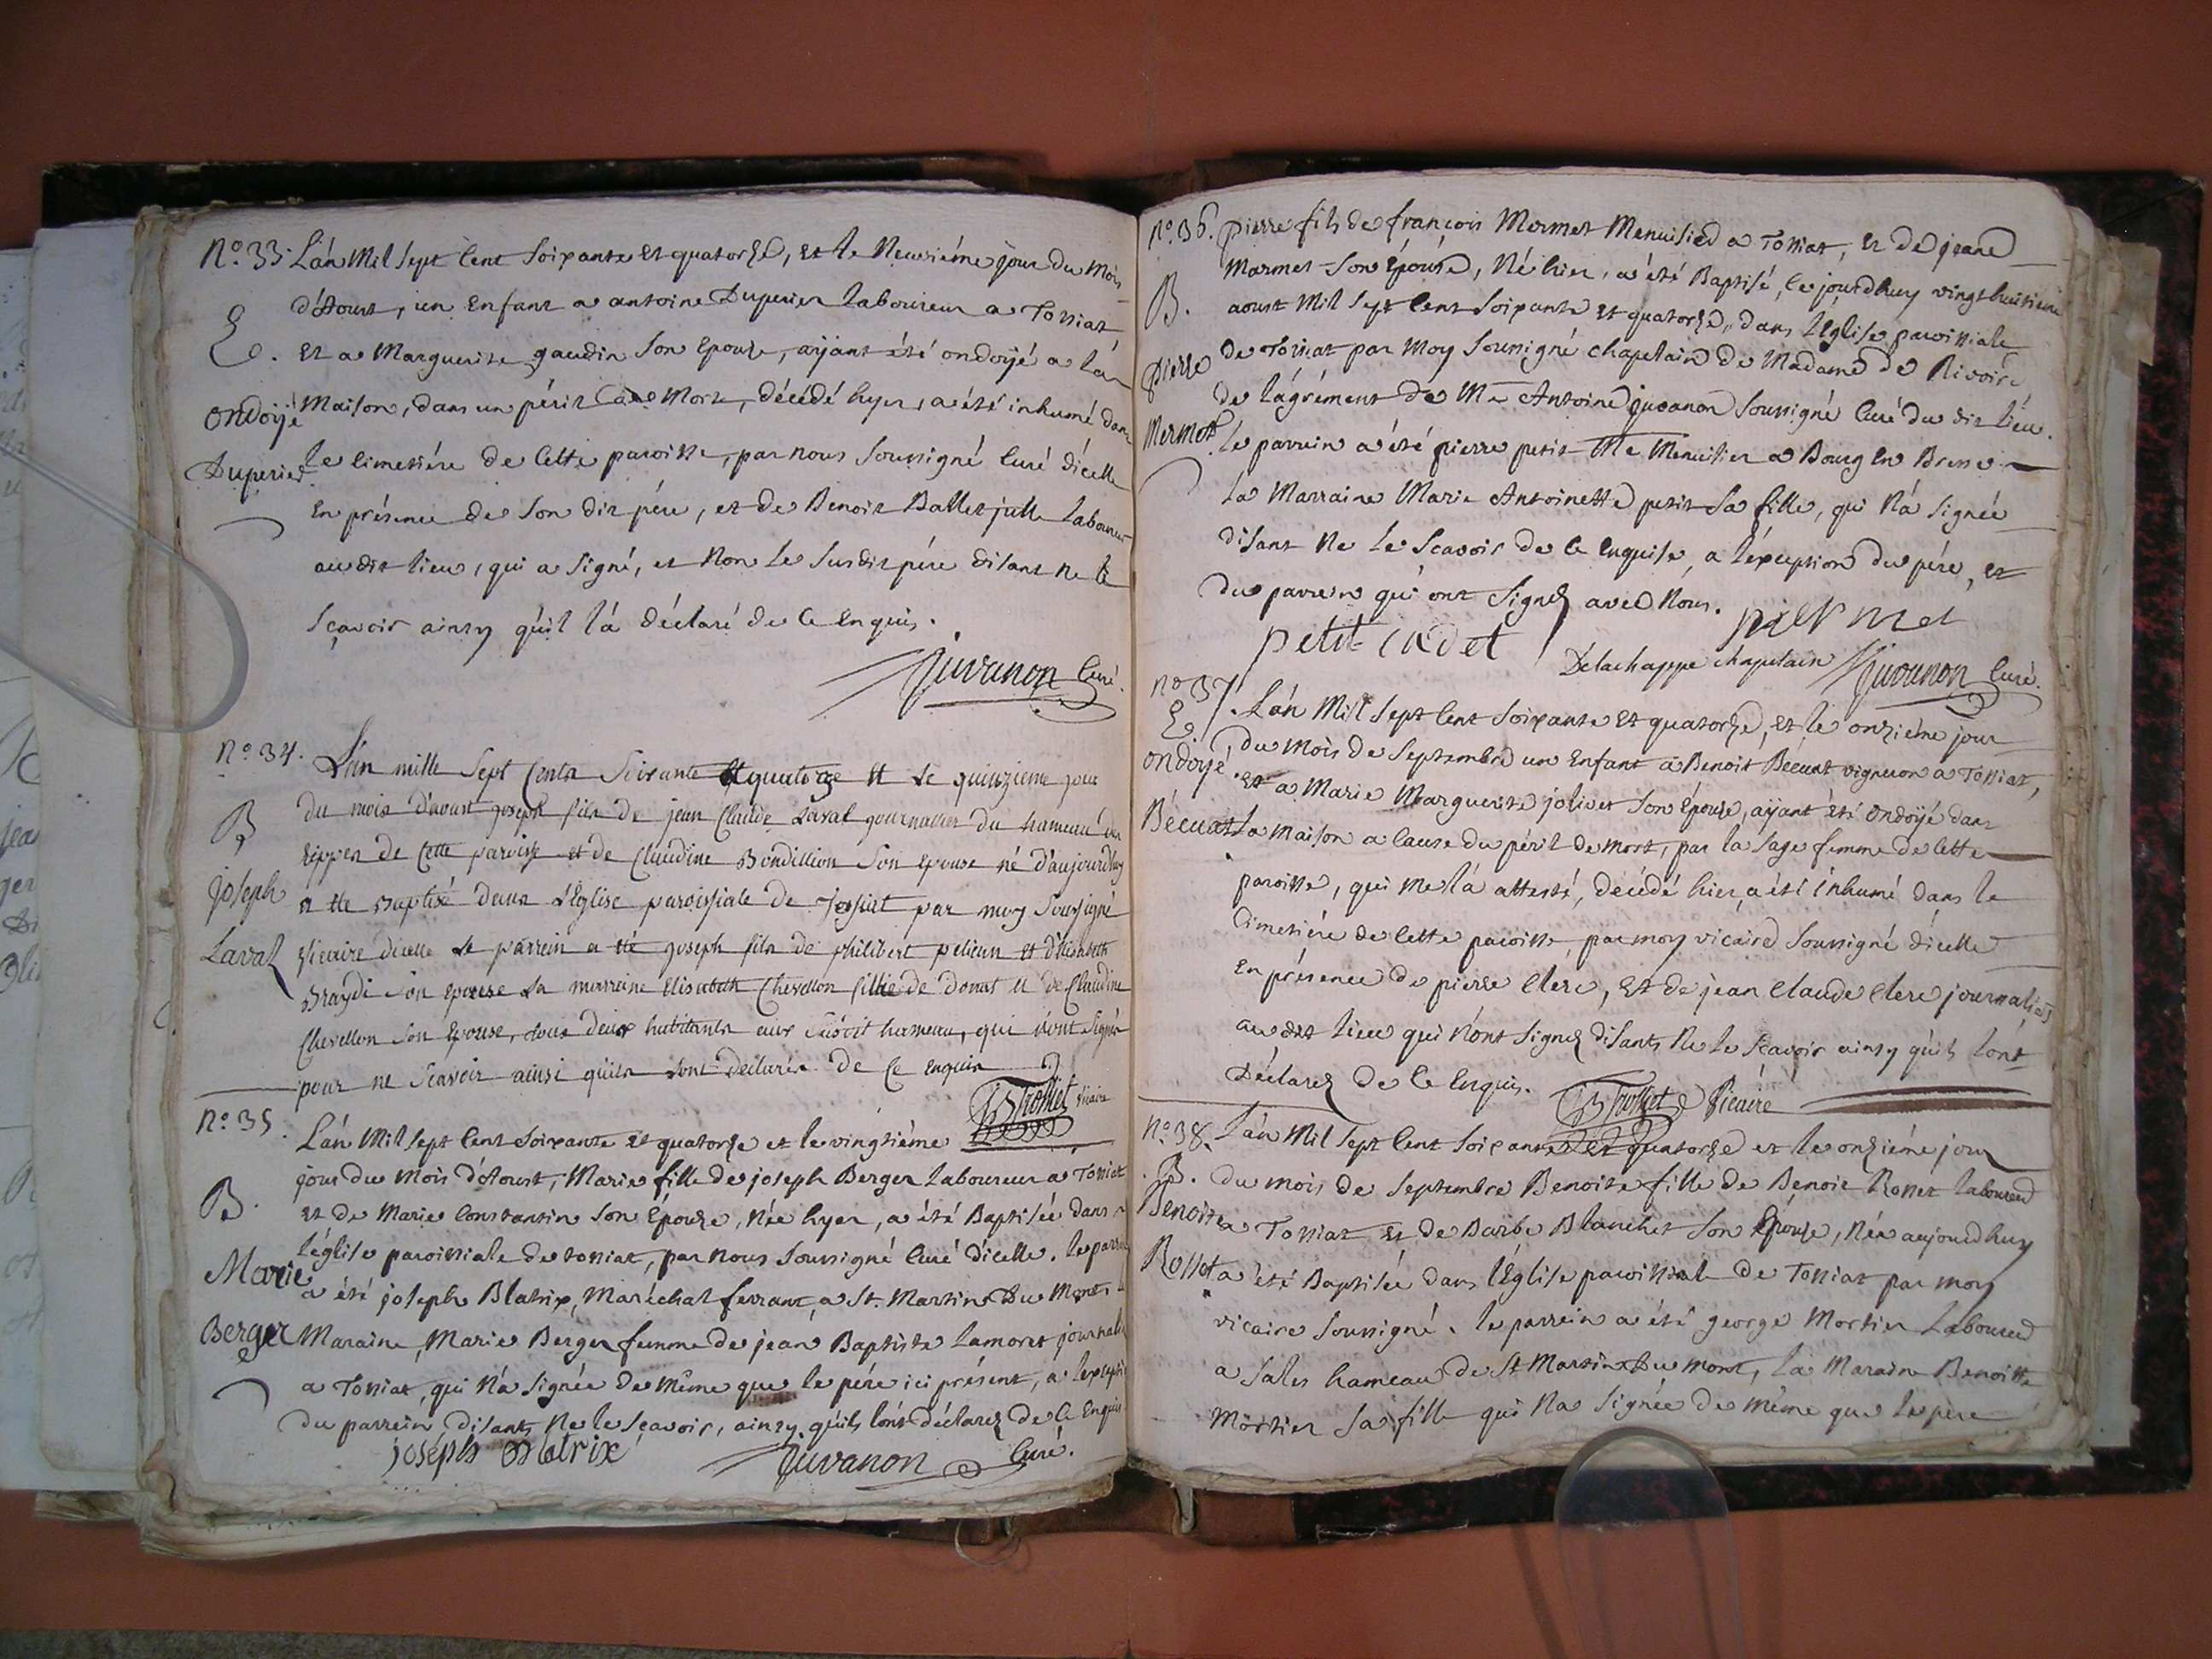 N.º 33. L'an Mil sept Cent soixante et quatorze, et le Neuviéme jour du Mois
d'Aoust, un Enfant a antoine Duperier Laboureur a Tossiat
E. et a Marguerite gaudin son Epouse, aÿant été ondoÿé a la
ondoÿé Maison, dans un péril de Mort, décédé hyer, a été inhumé dans
Duperier le Cimetiére de Cette paroisse, par nous soussigné Curé d'icelle
En présence de son dit pére, et de Benoit Ballet jull Laboureur
au dit lieu, qui a signé, et Non le susdit pére disant ne le
sçavoir ainsy qu'il l'a déclaré de Ce Enquis.
Juvanon Curé.
N.º 34. L'an mille sept Cents soixante et quatorze et le quinzieme jour
du mois d'aoust joseph fils de jean Claude Laval journallier du hameau de
B rippes de Cette paroisse et de Claudine Bondillion son epouse né d'aujourdhuy
joseph a ete Baptisé dans l'Eglise paroissiale de Tossiat par moy soussigné
Laval vicaire dicelle le parrein a ete joseph fils de philibert pelican et d'elisabeth
Braydi son epouse la marreine Elisabeth Chevellon fille de donat et de Claudine
Chevellon son Epouse, tous deux habitants au susdit hameau, qui n'ont signés
pour ne sçavoir ainsi qu'ils l'ont déclarés de Ce enquis
Trolliet vicaire
N.º 35. L'an Mil sept Cent soixante et quatorze et le vingtiéme
jour du Mois d'Aoust, Marie fille de joseph Berger Laboureur a Tossiat
B. et de Marie Constantin son Epouse, Née hyer, a été Baptisée dans
l'église paroissiale de tossiat, par nous soussigné Curé dicelle. le parrein
Marie a été joseph Blatrix, Maréchal ferrant, a St. Martin Du Mont, la
Berger Maraine, Marie Berger femme de jean Baptiste Lamoret journalier
a Tossiat, qui N'a signée de même que le pére ici présent, a l'exception
du parrein, disants Ne le sçavoir, ainsy qu'ils l'ont déclarez de Ce Enquis
joséph Blatrix Juvanon Curé.
N.º 36. pierre fils de françois Mermet Menuisier a Tossiat, et de jeane
Marmet son Epouse, Né hier, a été Baptisé, Ce jourdhuy vingthuitieme
B. aoust Mil sept Cent soixante et quatorze, dans l'Eglise paroissiale
pierre de Tossiat par Moy soussigné Chapelain de Madame de Rivoire
de l'agrément de Mre Antoine juvanon soussigné Curé du dit lieu.
Mermet le parrein a été pierre petit Me Menuisier a Bourg En Bresse
La Marraine Marie Antoinette petit sa fille, qui N'a signée
disant Ne le sçavoir de Ce Enquise, a l'éxception du pére, et
du parrein qui ont signez avec Nous.
petit cadet mermet
Delachappe chapelain Juvanon Curé.
N.º 37. L'an Mil sept Cent soixante et quatorze, et le onziéme jour
E. du Mois de Septembre un Enfant a Benoit Bécuat vigneron a Tossiat,
ondoyé et a Marie Marguerite jolivet son Epouse, aÿant été ondoÿé dans
Bécuat La Maison a Cause du péril de mort, par la sage femme de Cette
paroisse, qui me l'a attesté, décédé hier, a été inhumé dans le
Cimetiére de Cette paroisse par moy vicaire soussigné dicelle
En présence de pierre Clerc, et de jean Claude Clerc journaliers
au dit lieu qui n'ont signez disants Ne le sçavoir ainsy qu'ils l'ont
Déclarez de Ce Enquis. Trolliet Vicaire
N.º 38. L'an Mil sept Cent soixante et quatorze et le onziéme jour
B. du mois de Septembre Benoite fille de Benoit Rosset Laboureur
Benoite a Tossiat et de Barbe Blanchet son Epouse, Née aujourdhuy
Rosset a été Baptisée dans l'Eglise paroissiale de Tossiat par moy
vicaire soussigné. le parrein a été george Mortier Laboureur
a Sales hameau de St Martin Du mont, La Maraine Benoitte
Mortier sa fille qui Na signée de même que le pére